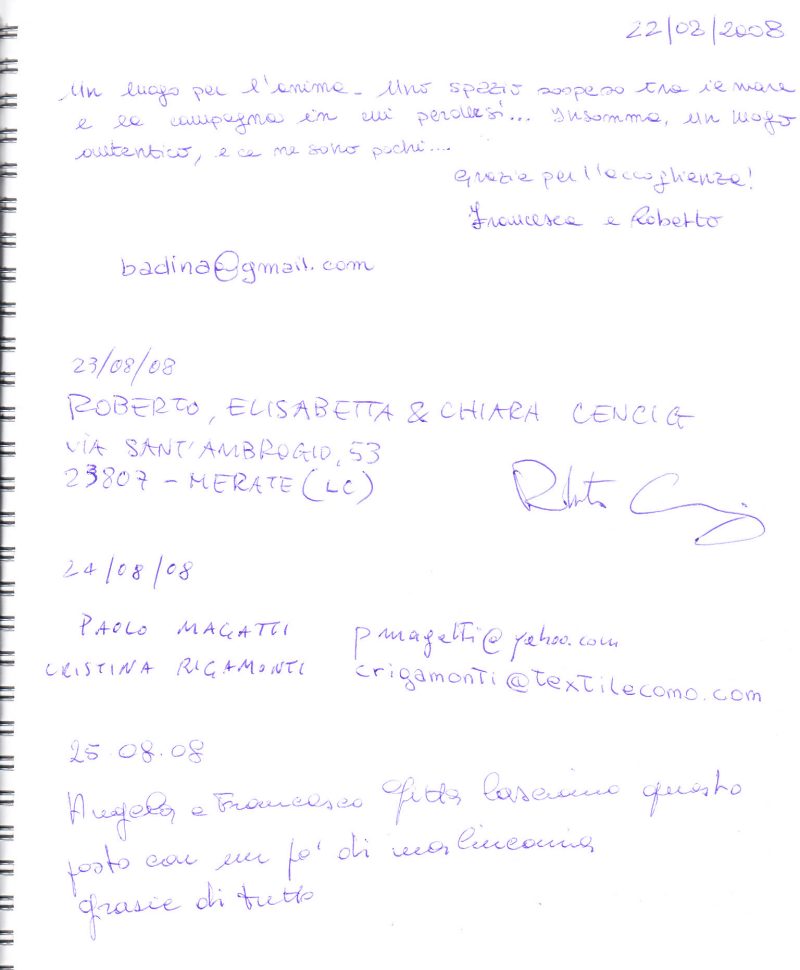 22/08/2008
Un luogo per l'anima. Uno spazio sospeso tra il mare
e la campagna in cui perdersi... Insomma, un luogo
autentico, e ce ne sono pochi....
Grazie per l'accoglienza!
Francesca e Roberto
badina@gmail.com
23/08/08
ROBERTO, ELISABETTA & CHIARA CENCIG
VIA SANT'AMBROGIO, 53
23807 - MERATE (LC)
24/08/08
PAOLO MAGATTI pmagatti@yahoo.com
CRISTINA RIGAMONTI crigamonti@textilecomo.com
25.08.08
Angela e Francesco lasciamo questo
posto con un po' di malinconia
grazie di tutto